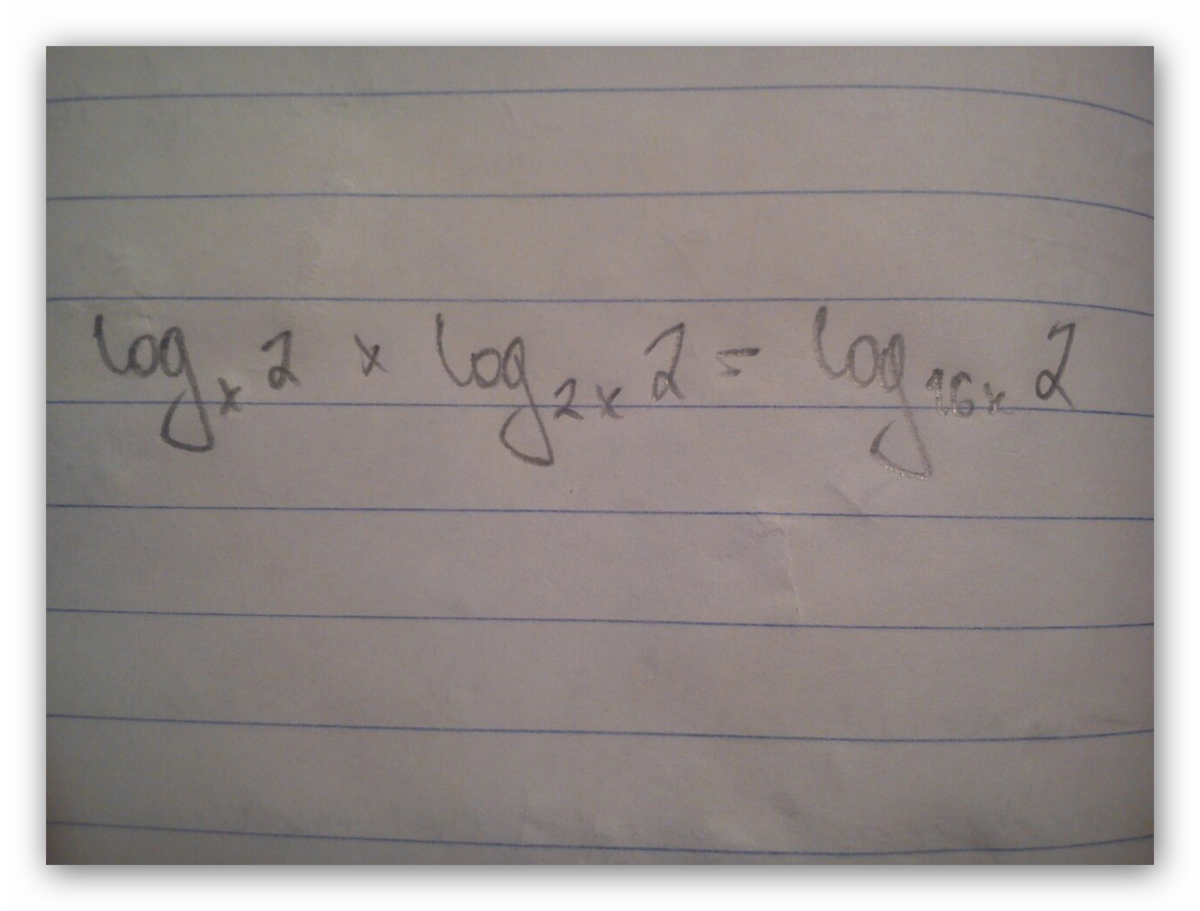 logₓ 2 × log₂ₓ 2 = log₁₆ₓ 2